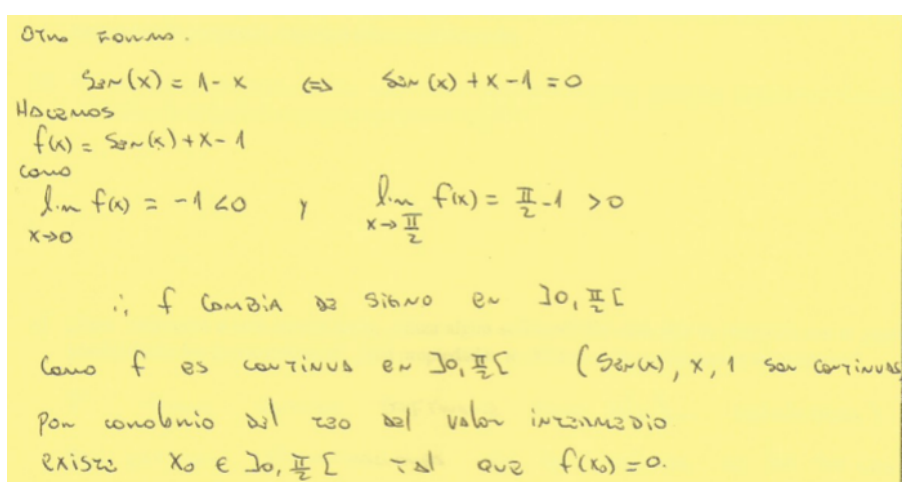 Otra forma.
Sen(x) = 1 - x ⇔ Sen(x) + x - 1 = 0
Hacemos
f(x) = Sen(x) + x - 1
como
lim f(x) = -1 < 0 y lim f(x) = π/2 - 1 > 0
x→0 x→π/2
∴ f cambia de signo en ]0, π/2[
Como f es continua en ]0, π/2[ (Sen(x), x, 1 son continuas
por corolario del teo del valor intermedio
existe x₀ ∈ ]0, π/2[ tal que f(x₀) = 0.